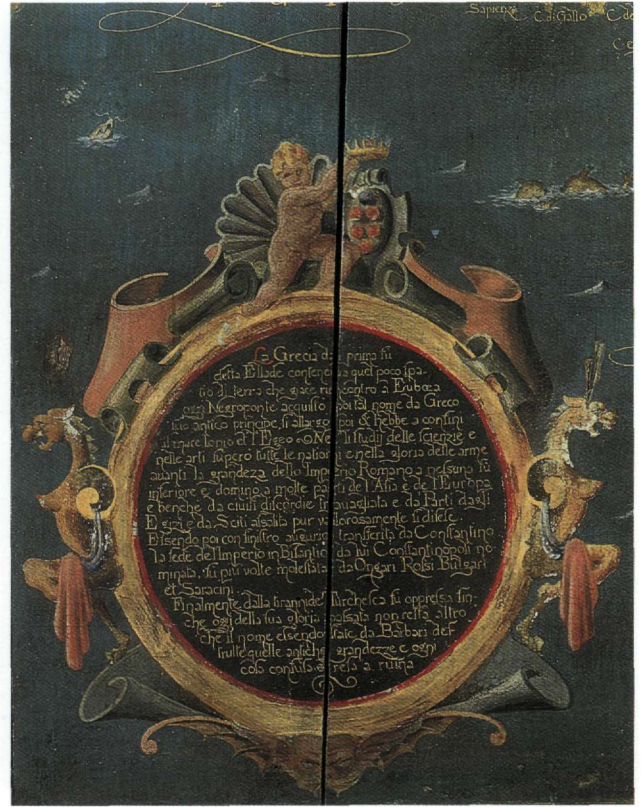 Sapienza
C. di Gallo
La Grecia da prima fu
detta Ellade conteneva quel poco spa-
tio di terra che giace rincontro a Euboea
oggi Negroponte acquisto poi tal nome da Greco
suo antico principe, si allargo poi & hebbe a confini
il mare Ionio et l'Egeo Negli studij delle scienzie e
nelle arti supero tutte le nationi e nella gloria delle arme
avanti la grandeza dello Imperio Romano a nessuna fu
inferiore e domino a molte parti de l'Asia e de l'Europa
e benche da civili discordie travagliata e da Parti dagli
Egizi e da Sciti assalita pur valorosamente si difese
Essendo poi con sinistro augurio transferita da Constantino
la sede de l'Imperio in Bisantio da lui Constantinopoli no-
minata, fu piu volte molestata da Ongari Rossi Bulgari
et Saracini
Finalmente dalla tirannide Turchesca fu oppressa sin-
che oggi della sua gloria passata non resta altro
che il nome essendo state da Barbari des-
trutte quelle antiche grandezze e ogni
cosa confusa e resa a ruina